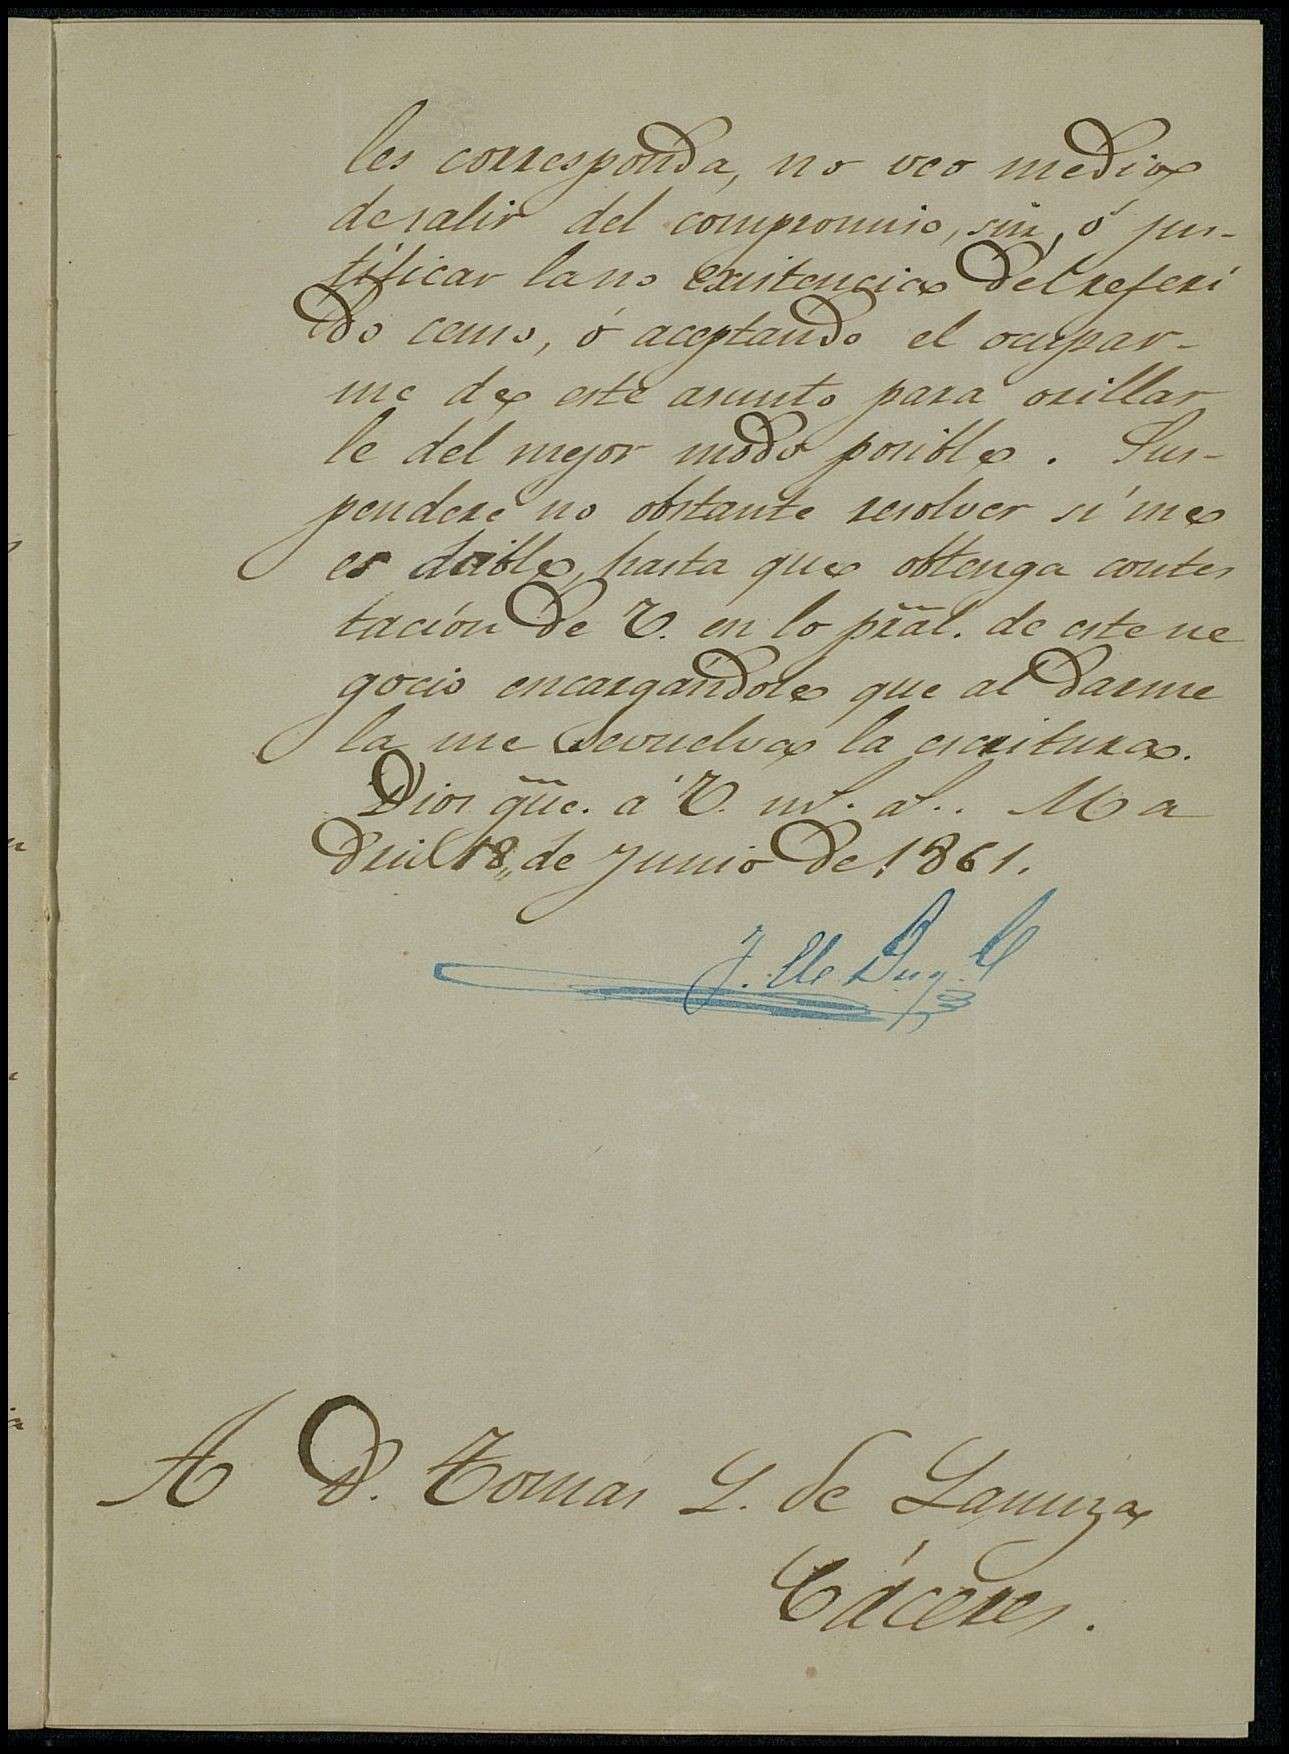 les corresponda, no veo medio
de salir del compromiso, sinó, ó jus-
tificar la no existencia del referi
do censo, ó aceptando el ocupar-
me de este asunto para orillar
le del mejor modo posible. Sus-
penderé no obstante resolver si me
es doible, hasta que obtenga contes
tación de V. en lo pral. de este ne
gocio encargandole que al darme
la me devuelva la escritura.
Dios gue. á V. ms. as. Ma
drid 18,, de Junio de 1861.
A D. Tomás L. de Lanuza
Cáceres.